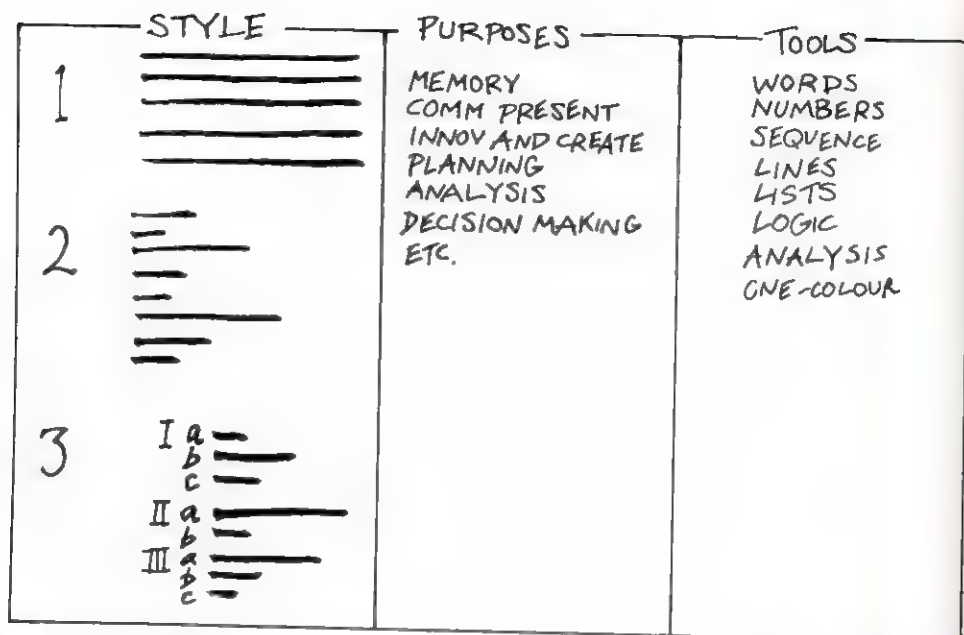 STYLE
PURPOSES
TOOLS
1
2
3
I a
b
c
II a
b
III a
b
c
MEMORY
COMM PRESENT
INNOV AND CREATE
PLANNING
ANALYSIS
DECISION MAKING
ETC.
WORDS
NUMBERS
SEQUENCE
LINES
LISTS
LOGIC
ANALYSIS
ONE-COLOUR